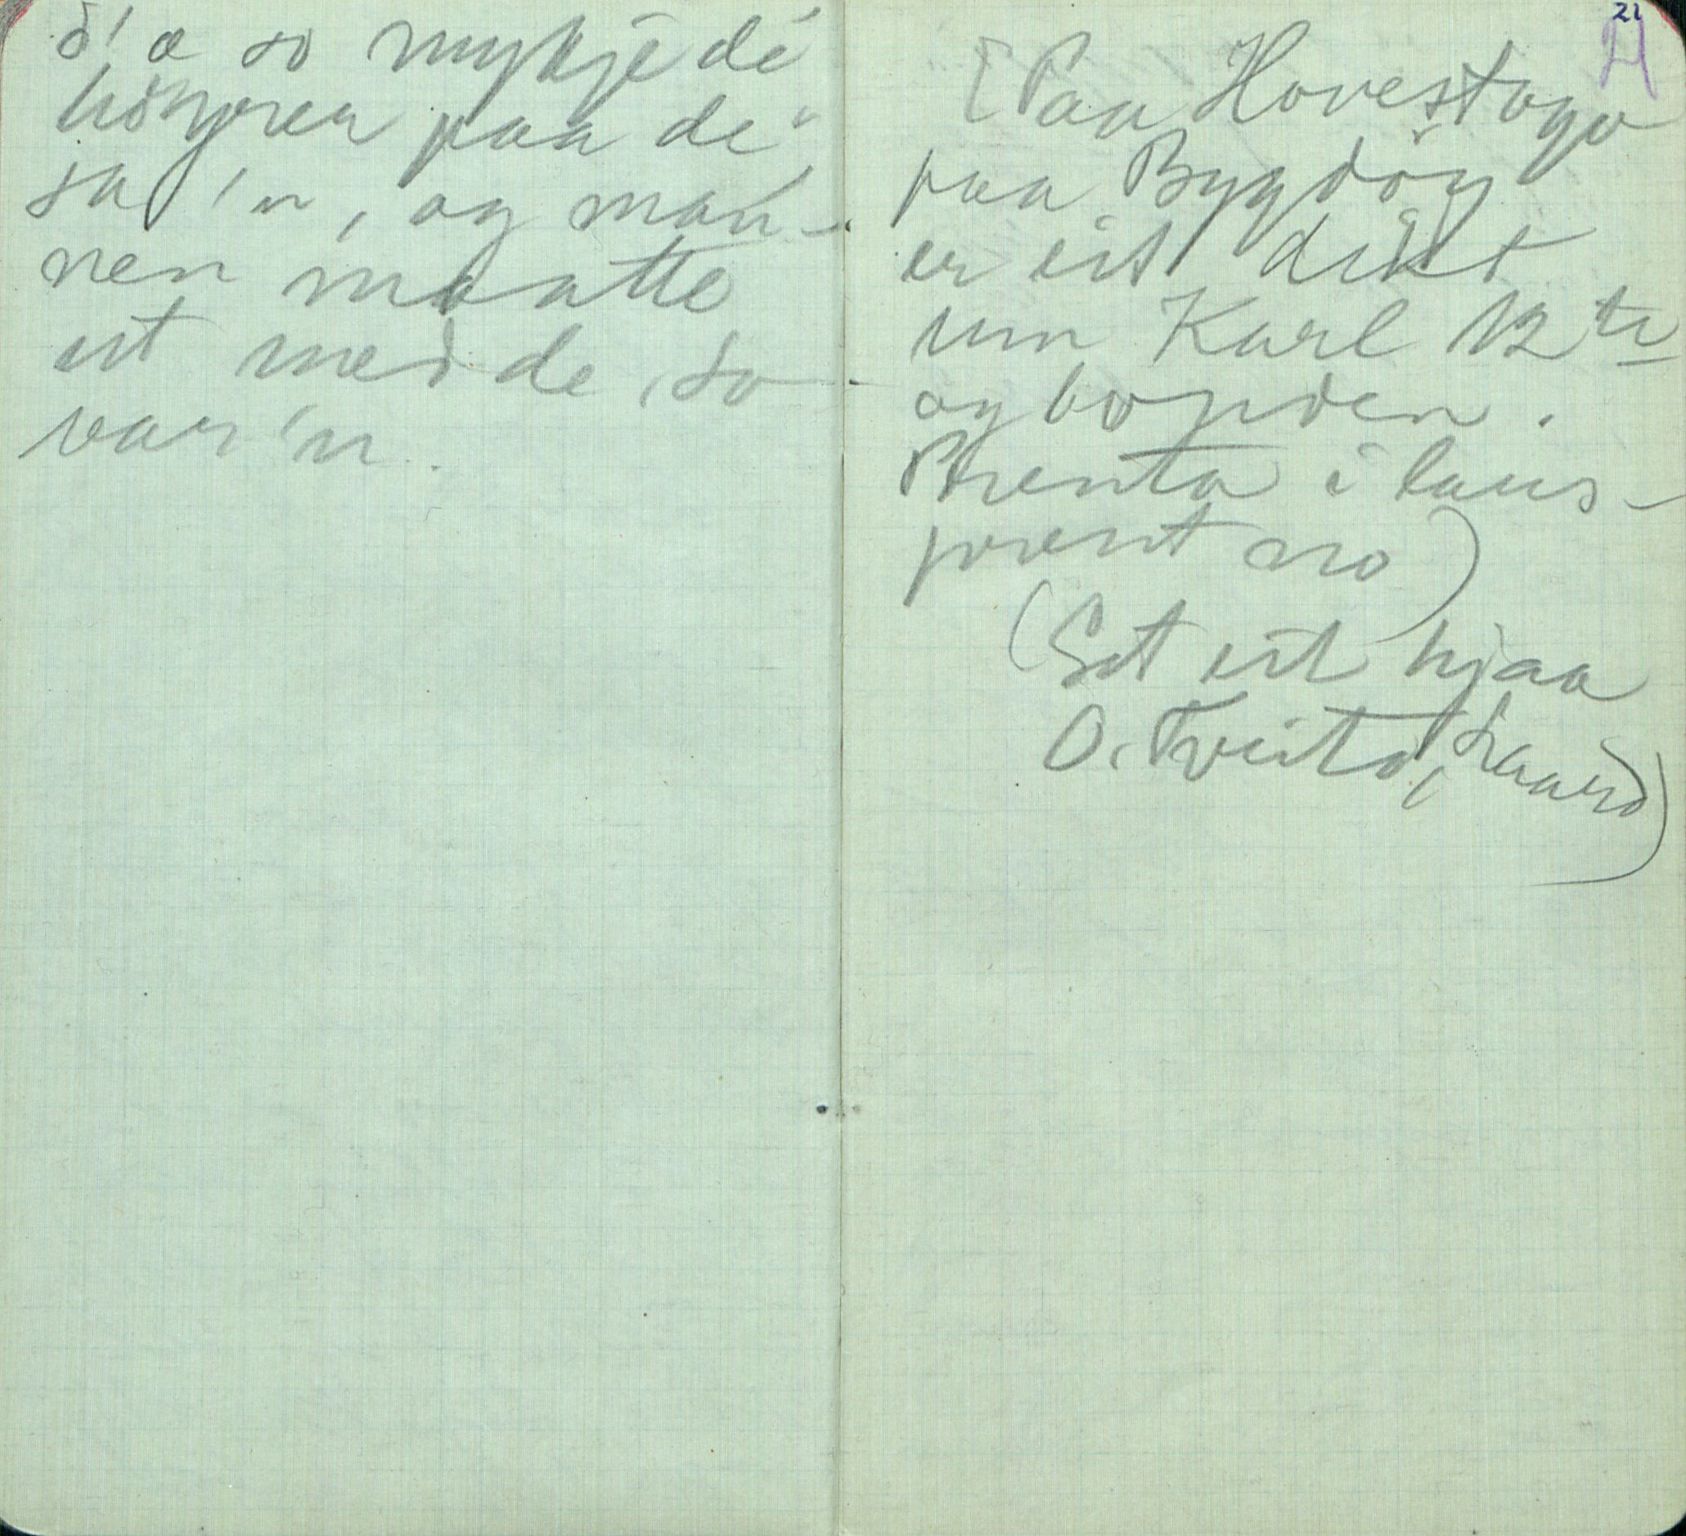 d' æ so mykje dé
paa dé
sa 'n, og man-
nen maatte
ut med de, so
var 'n.
21
21
[Paa Hovestoga
paa Bygdöy
er eit dikt
um Karl 12te
og bonden.
Prenta i laus-
prent no)
(Set eit hjaa
O. Tveito,